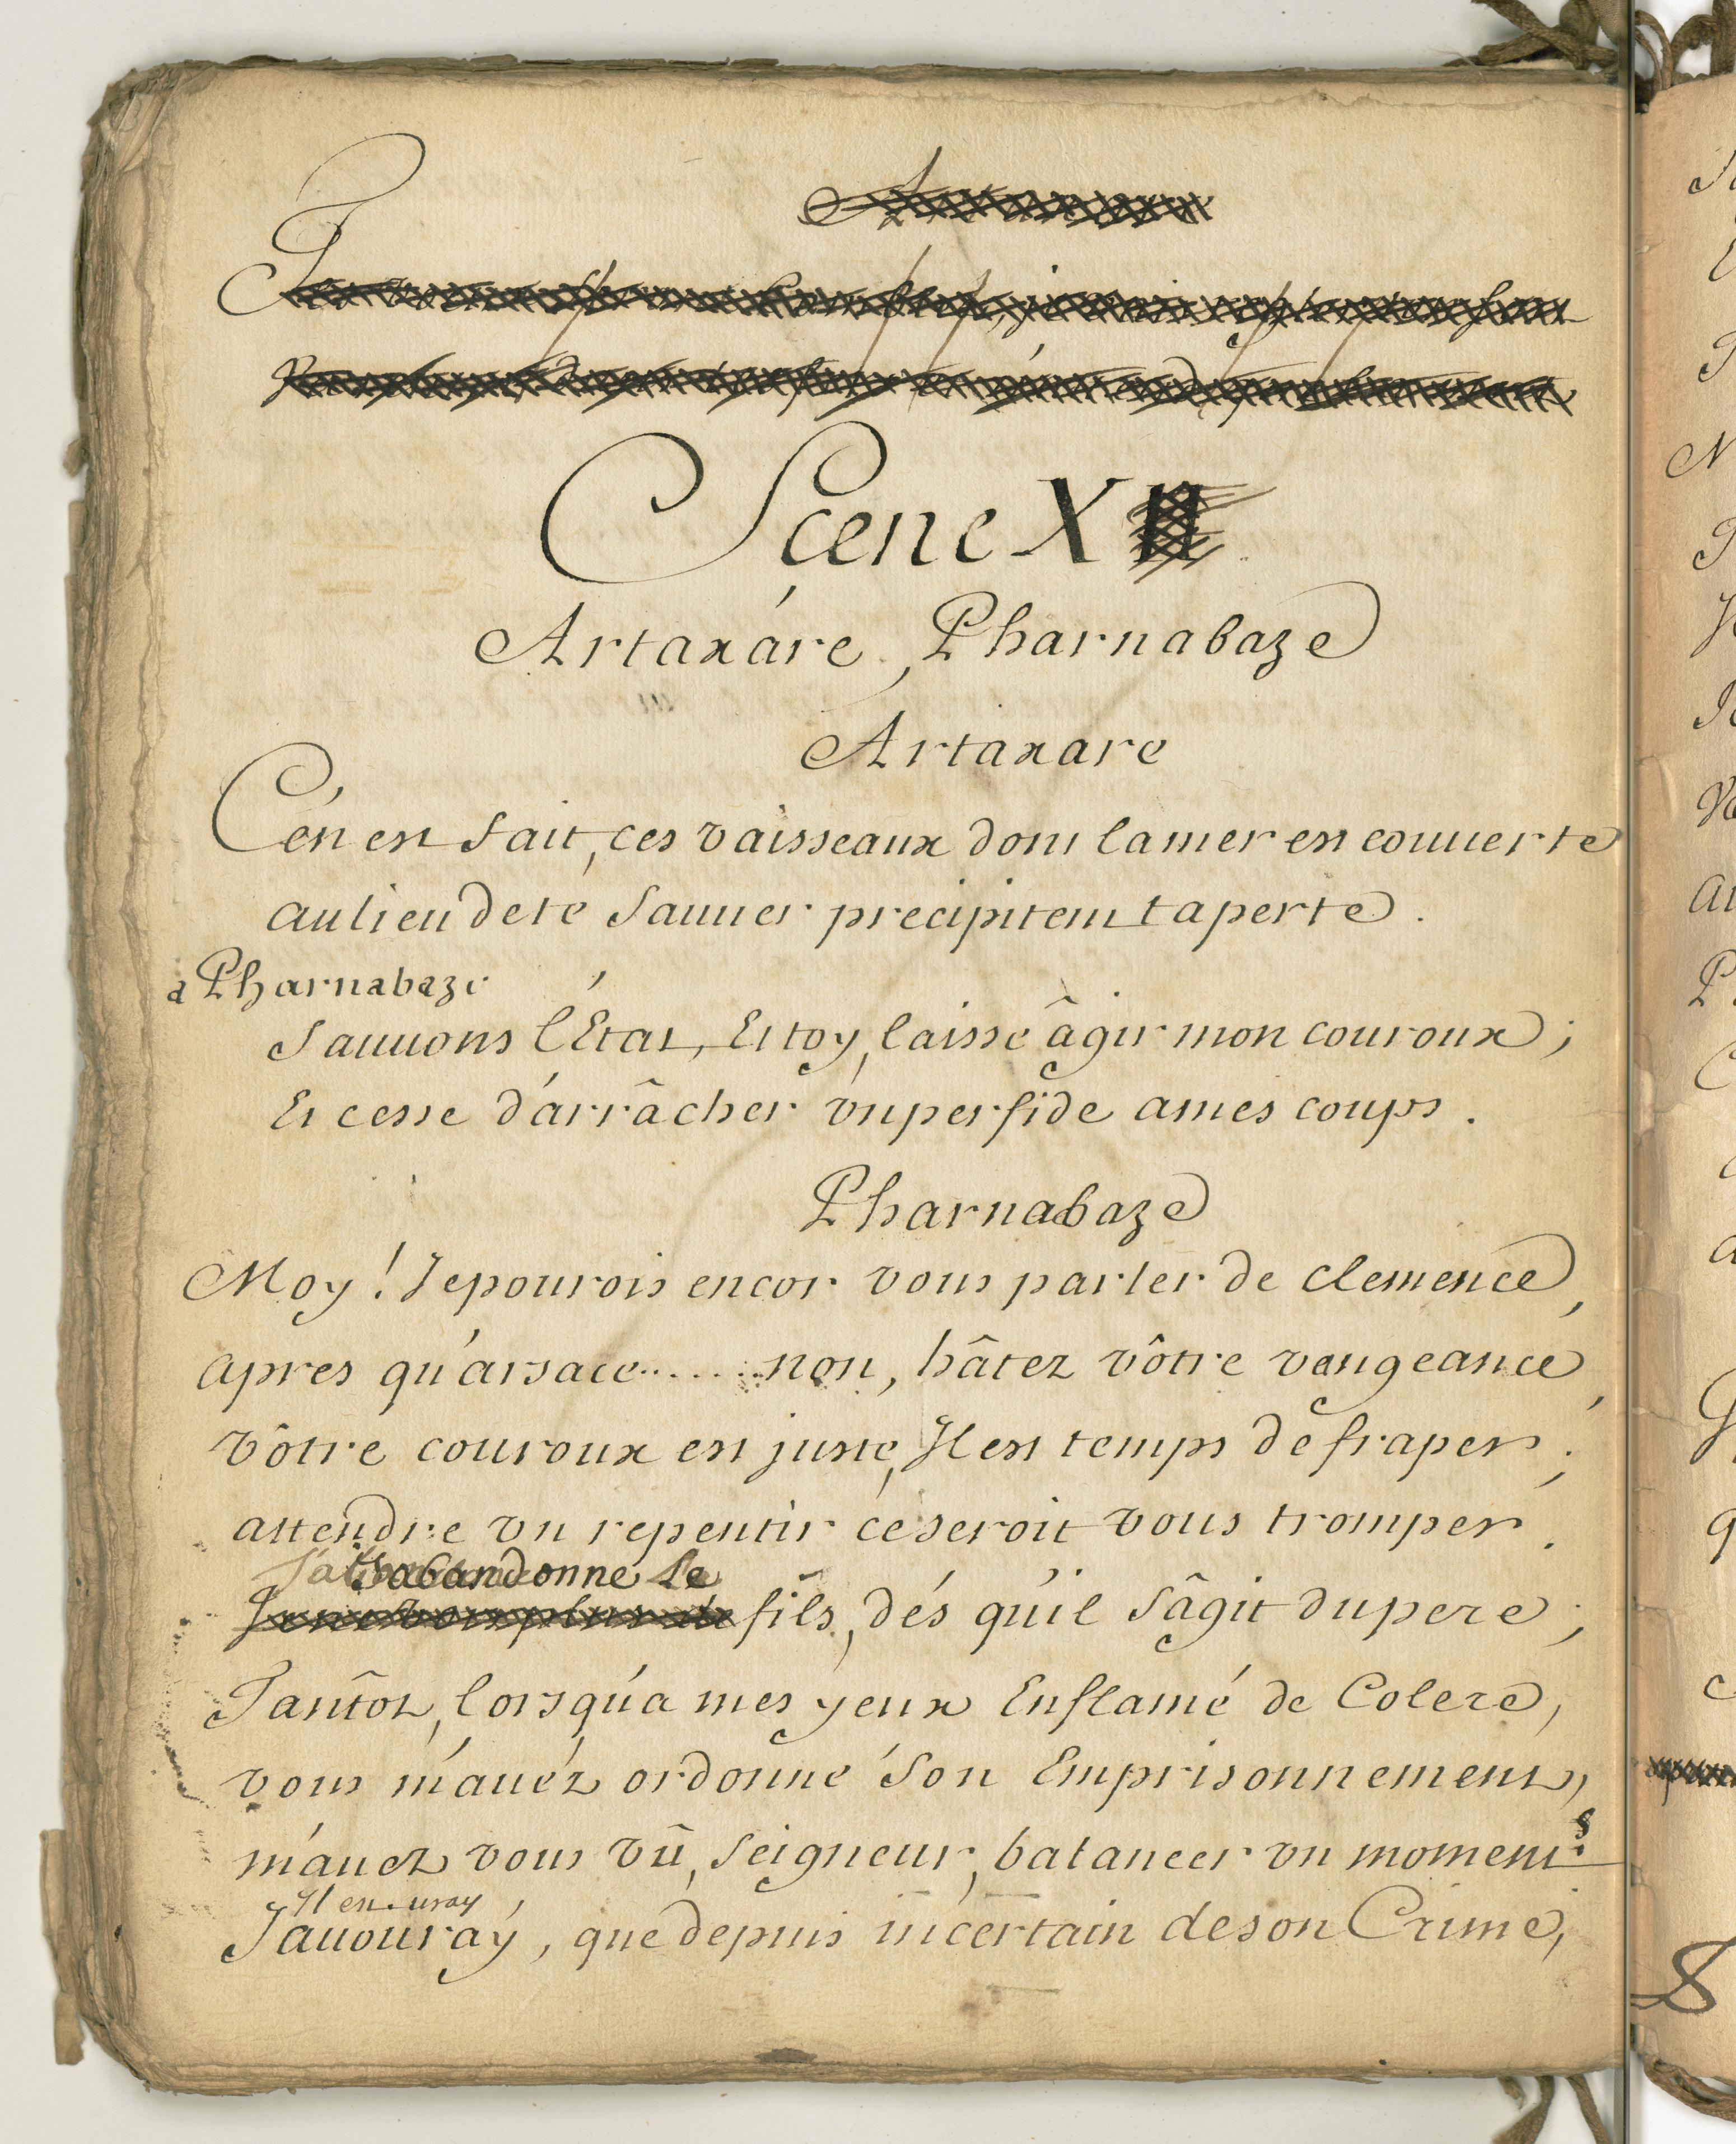 Scene X
Artaxare, Pharnabaze
Artaxare
C'en est fait, ces vaisseaux dont la mer est couuerte
au lieu de te sauuer precipitent ta perte.
a Pharnabaze
Sauuons l'État, Et toy, laisse âgir mon couroux;
Et cesse d'arrâcher vn perfide a mes coups.
Pharnabaze
Moy! Je pourois encor vous parler de clemence,
apres qu'arsace...... non, hâtez vôtre vengeance,
vôtre couroux est juste, Il est temps de fraper;
attendre vn repentir ce seroit vous tromper.
J'abandonne Le
Je ne vois plus de fils, dés qu'il s'âgit du pere;
Tantôt, lorsqu'a mes yeux Enflamé de Colere,
vous m'auéz ordonné son Emprisonnement,
m'auez vous vû, seigneur, balancer vn moment
Il est uray
J'auouray, que depuis incertain de son Crime,